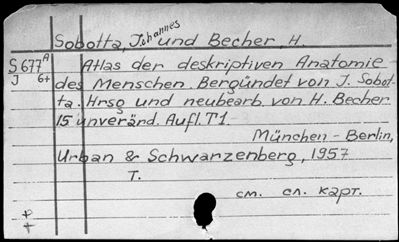 Sobotta, Johannes und Becher, H.
S 677 A Atlas der deskriptiven Anatomie
J 6+ des Menschen. Bergündet von J. Sobot-
ta. Hrsg und neubearb. von H. Becher
15 unverärd. Aufl. T1.
München - Berlin,
Urban & Schwarzenberg, 1957
T.
см. сл. карт.
+
+